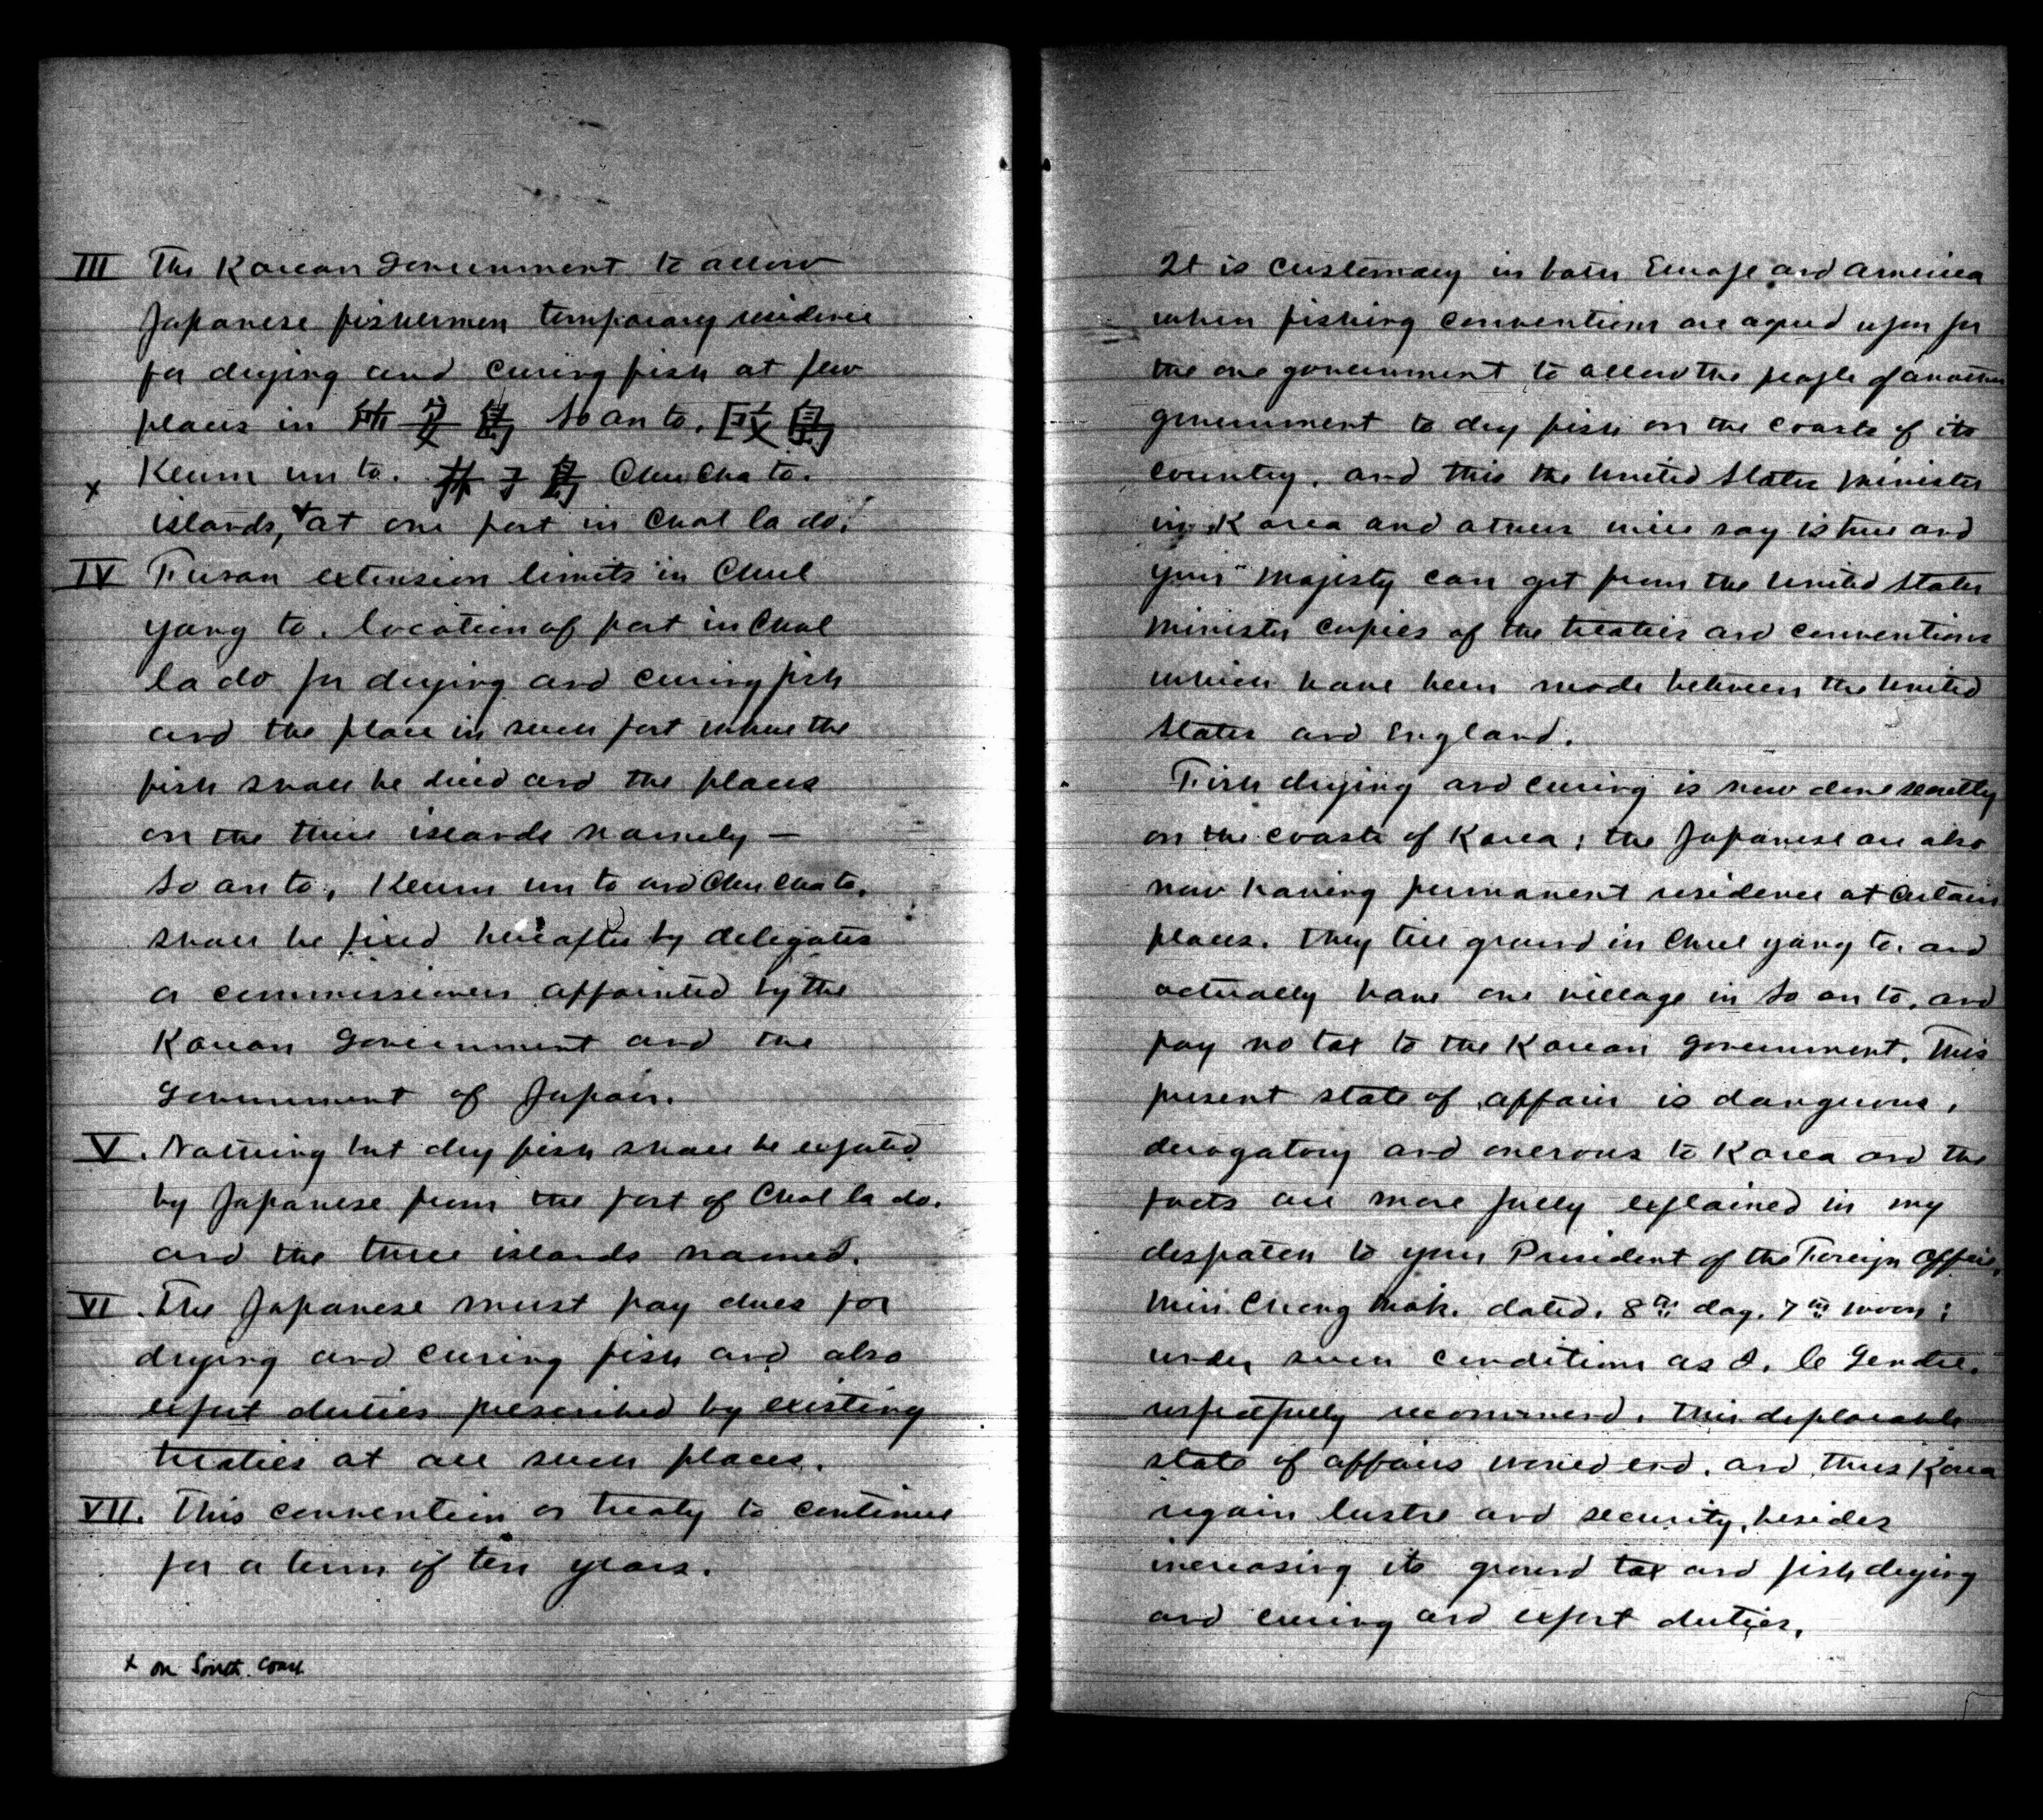 III The Korean Government to allow
Japanese fishermen temporary residence
for drying and curing fish at few
places in 安島 So an to. 島
x Keum un to. 子島 Chu Cha to.
islands, & at one port in Chol la do.
IV Fusan extension limits in Chul
yang to. location of port in Chol
la do for drying and curing fish
and the place in such port where the
fish shall be dried and the places
on the three islands namely —
So an to, Keum un to and Chu Cha to,
shall be fixed hereafter by delegates
or commissioners appointed by the
Korean Government and the
Government of Japan.
V. Nothing but dry fish shall be exported
by Japanese from the port of Chol la do.
and the three islands named.
VI. The Japanese must pay dues for
drying and curing fish and also
export duties prescribed by existing
treaties at all such places.
VII. This convention or treaty to continue
for a term of ten years.
x on South. Coast.
It is customary in both Europe and America
when fishing conventions are agreed upon for
the one government to allow the people of another
government to dry fish on the coasts of its
country. and this the United States Minister
in Korea and others will say is true and
your Majesty can get from the United States
Minister copies of the treaties and conventions
which have been made between the United
States and England.
Fish drying and curing is now done secretly
on the coasts of Korea; the Japanese are also
now having permanent residence at certain
places. They till ground in Chul yang to. and
actually have one village in So an to, and
pay no tax to the Korean Government. This
present state of affairs is dangerous,
derogatory and onerous to Korea and the
facts are more fully explained in my
despatch to your President of the Foreign Office,
Min Chong Mok. dated. 8th day. 7th moon;
under such conditions as I. le Gendre.
respectfully recommend. this deplorable
state of affairs would end. and thus Korea
regain lustre and security, besides
increasing its ground tax and fish drying
and curing and export duties.